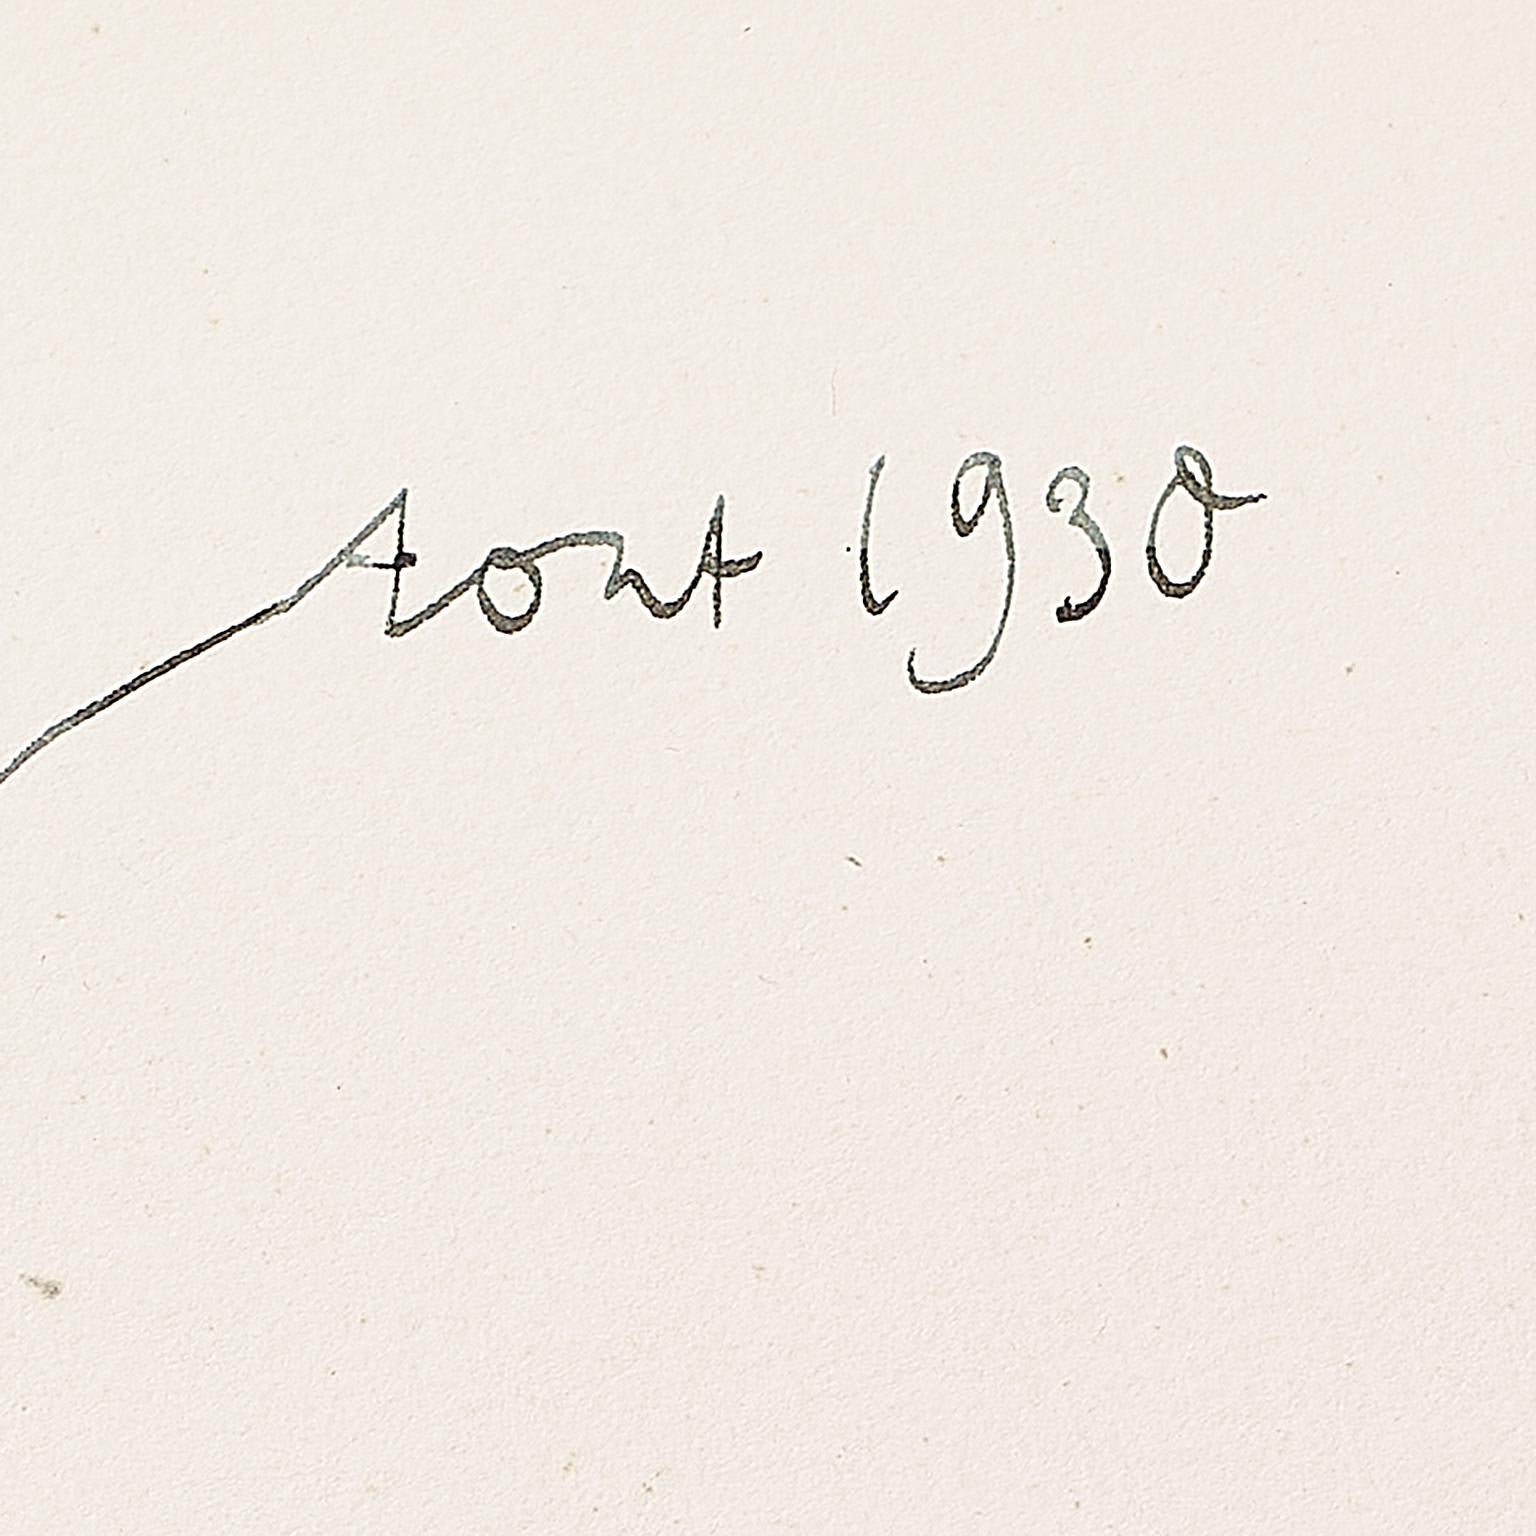 Aout 1930